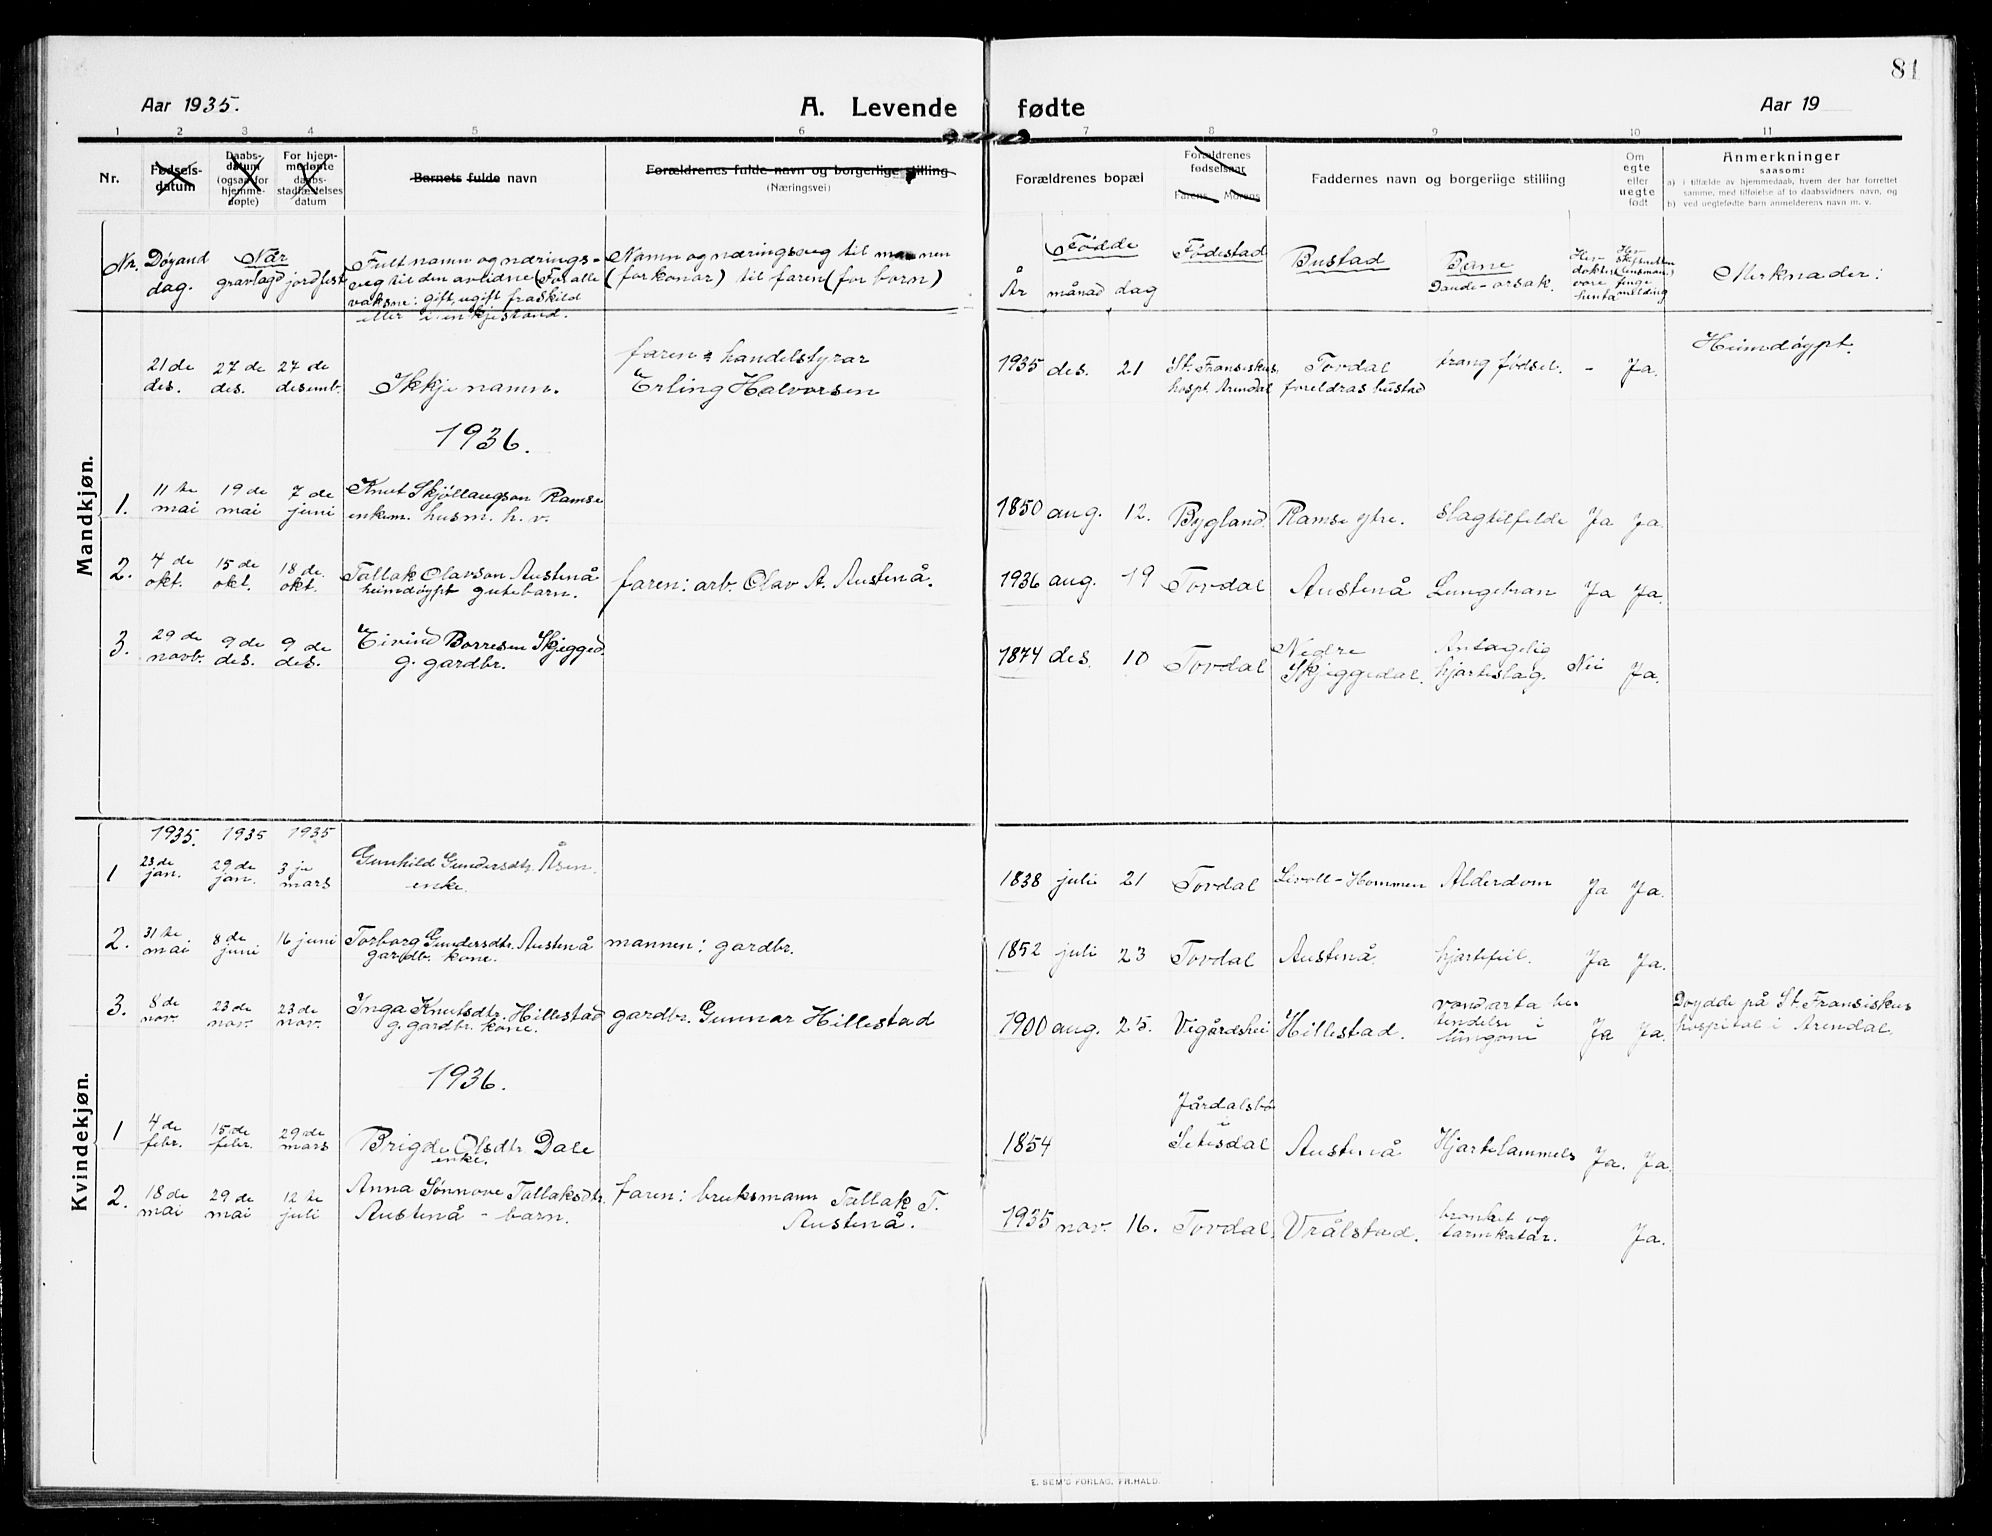 81
Aar 1935.
A. Levende fødte
Aar 19
1 2 3 4 5 6 7 8 9 10 11
Nr.
Fødsels-
datum
Daabs-
datum
(ogsaa for
hjemme-
døpte)
For hjem-
medøpte
daabs-
stadfæstelses
datum
Barnets fulde navn
Forældrenes fulde navn og borgerlige stilling
(Næringsvei)
Forældrenes bopæl
Forældrenes
fødselsaar
Farens Morens
Faddernes navn og borgerlige stilling
Om
egte
eller
uegte
født
Anmerkninger
saasom:
a) i tilfælde av hjemmedaab, hvem der har forrettet
samme, med tilføielse af to daabsvidners navn, og
b) ved uegtefødte barn anmelderens navn m. v.
Nr. Døyand
dag.
Nær
gravlagd jordfest
Fult namn og nærings-
veg til den avlidne (For alle
vaksne: gift, ugift fraskild
eller i enkjestand.
Namn og næringsveg til mannen
(for konor) til faren (for born)
Fødde
År månad dag
Fødestad
Bustad
Bane
Daude-orsak.
Merknader:
Mandkjøn.
21 de
des.
27 de
des.
27 de
desemb.
Ikkje namn.
faren: handelstyrar
Erling Halvorsen
1935 des. 21
St. Fransiskus
hospt. Arendal
Tovdal
foreldras bustad
trang fødsel. - Ja.
Heimdøypt.
1936.
1. 11 te
mai
19 de
mai
7 de
juni
Knut Skjøllaugson Ramse
enkem. husm. h. v.
1850 aug. 12. Bygland. Ramse ytre. slagtilfelde Ja Ja.
2. 4 de
okt.
15 de
okt.
18 de.
okt.
Tallak Olavson Austenå
heimdøypt gutebarn.
faren: arb. Olav A. Austenå.
1936 aug. 19 Tovdal Austenå Lungebran Ja Ja.
3. 29 de
novb.
9 de
des.
9 de
des.
Eivind Borresen Skjeggad.
g. gardbr.
1874 des. 10 Tovdal
Nedre
Skjeggedal.
Antagelig
hjarteslag.
Nei Ja.
Kvindekjøn.
1935. 1935 1935
1 23 de
jan.
29 de
jan.
3 je
mars
Gunhild Gundersdtr. Åsen.
enke.
1838 juli 21 Tovdal Livoll-Hommen Alderdom Ja Ja.
2. 31 te
mai
8 de
juni
16 juni
Torborg Gundersdtr. Austenå
gardbr. kone.
mannen: gardbr.
1852 juli 23 Tovdal Austenå. hjartefeil. Ja Ja.
3. 8 de
nov.
23 de
nov.
23 de
nov.
Inga Knutsdtr. Hillestad
g. gardbr. kone.
gardbr. Gunnar Hillestad
1900 aug. 25. Vigårdshei Hillestad.
vondarta be-
tendelse i
lungone
Ja Ja.
Døydde på St. Fransiskus
hospital i Arendal.
1936.
1 4 de
febr.
15 de
febr.
29 de
mars
Brigde Olsdtr Dale
enke.
1854
i
Setesdal
Austenå Hjartelammels Ja. Ja.
2. 18 de
mai
29 de
mai
12 te
juli
Anna Sønnove Tallaksdtr.
Austenå - barn.
faren: bruksmann Tallak T.
Austenå.
1935 nov. 16. Tovdal. Vrålstad.
bronkit og
tarmkatar.
Ja.
E. SEM'S FORLAG, FR.HALD.